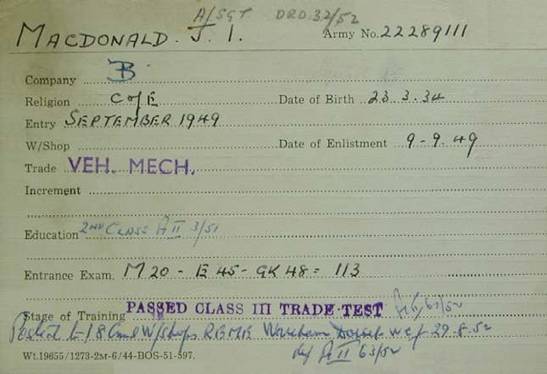 A/SGT DRO 32/52
MACDONALD. J. I. Army No. 22289111
Company B
Religion C of E Date of Birth 23.3.34
Entry SEPTEMBER 1949
W/Shop Date of Enlistment 9-9.49
Trade VEH. MECH.
Increment
Education 2ND CLASS A II 3/51
Entrance Exam. M20 - E45 - GK48 = 113
Stage of Training PASSED CLASS III TRADE TEST A II 63/52
Posted to 18 W/Shops REME Wareham Dorset wef 29.8.52
A II 63/52
Wt.19655/1273-2M-6/44-BOS-51-597.